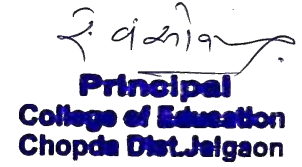 Principal
College of Education
Chopda Dist.Jalgaon